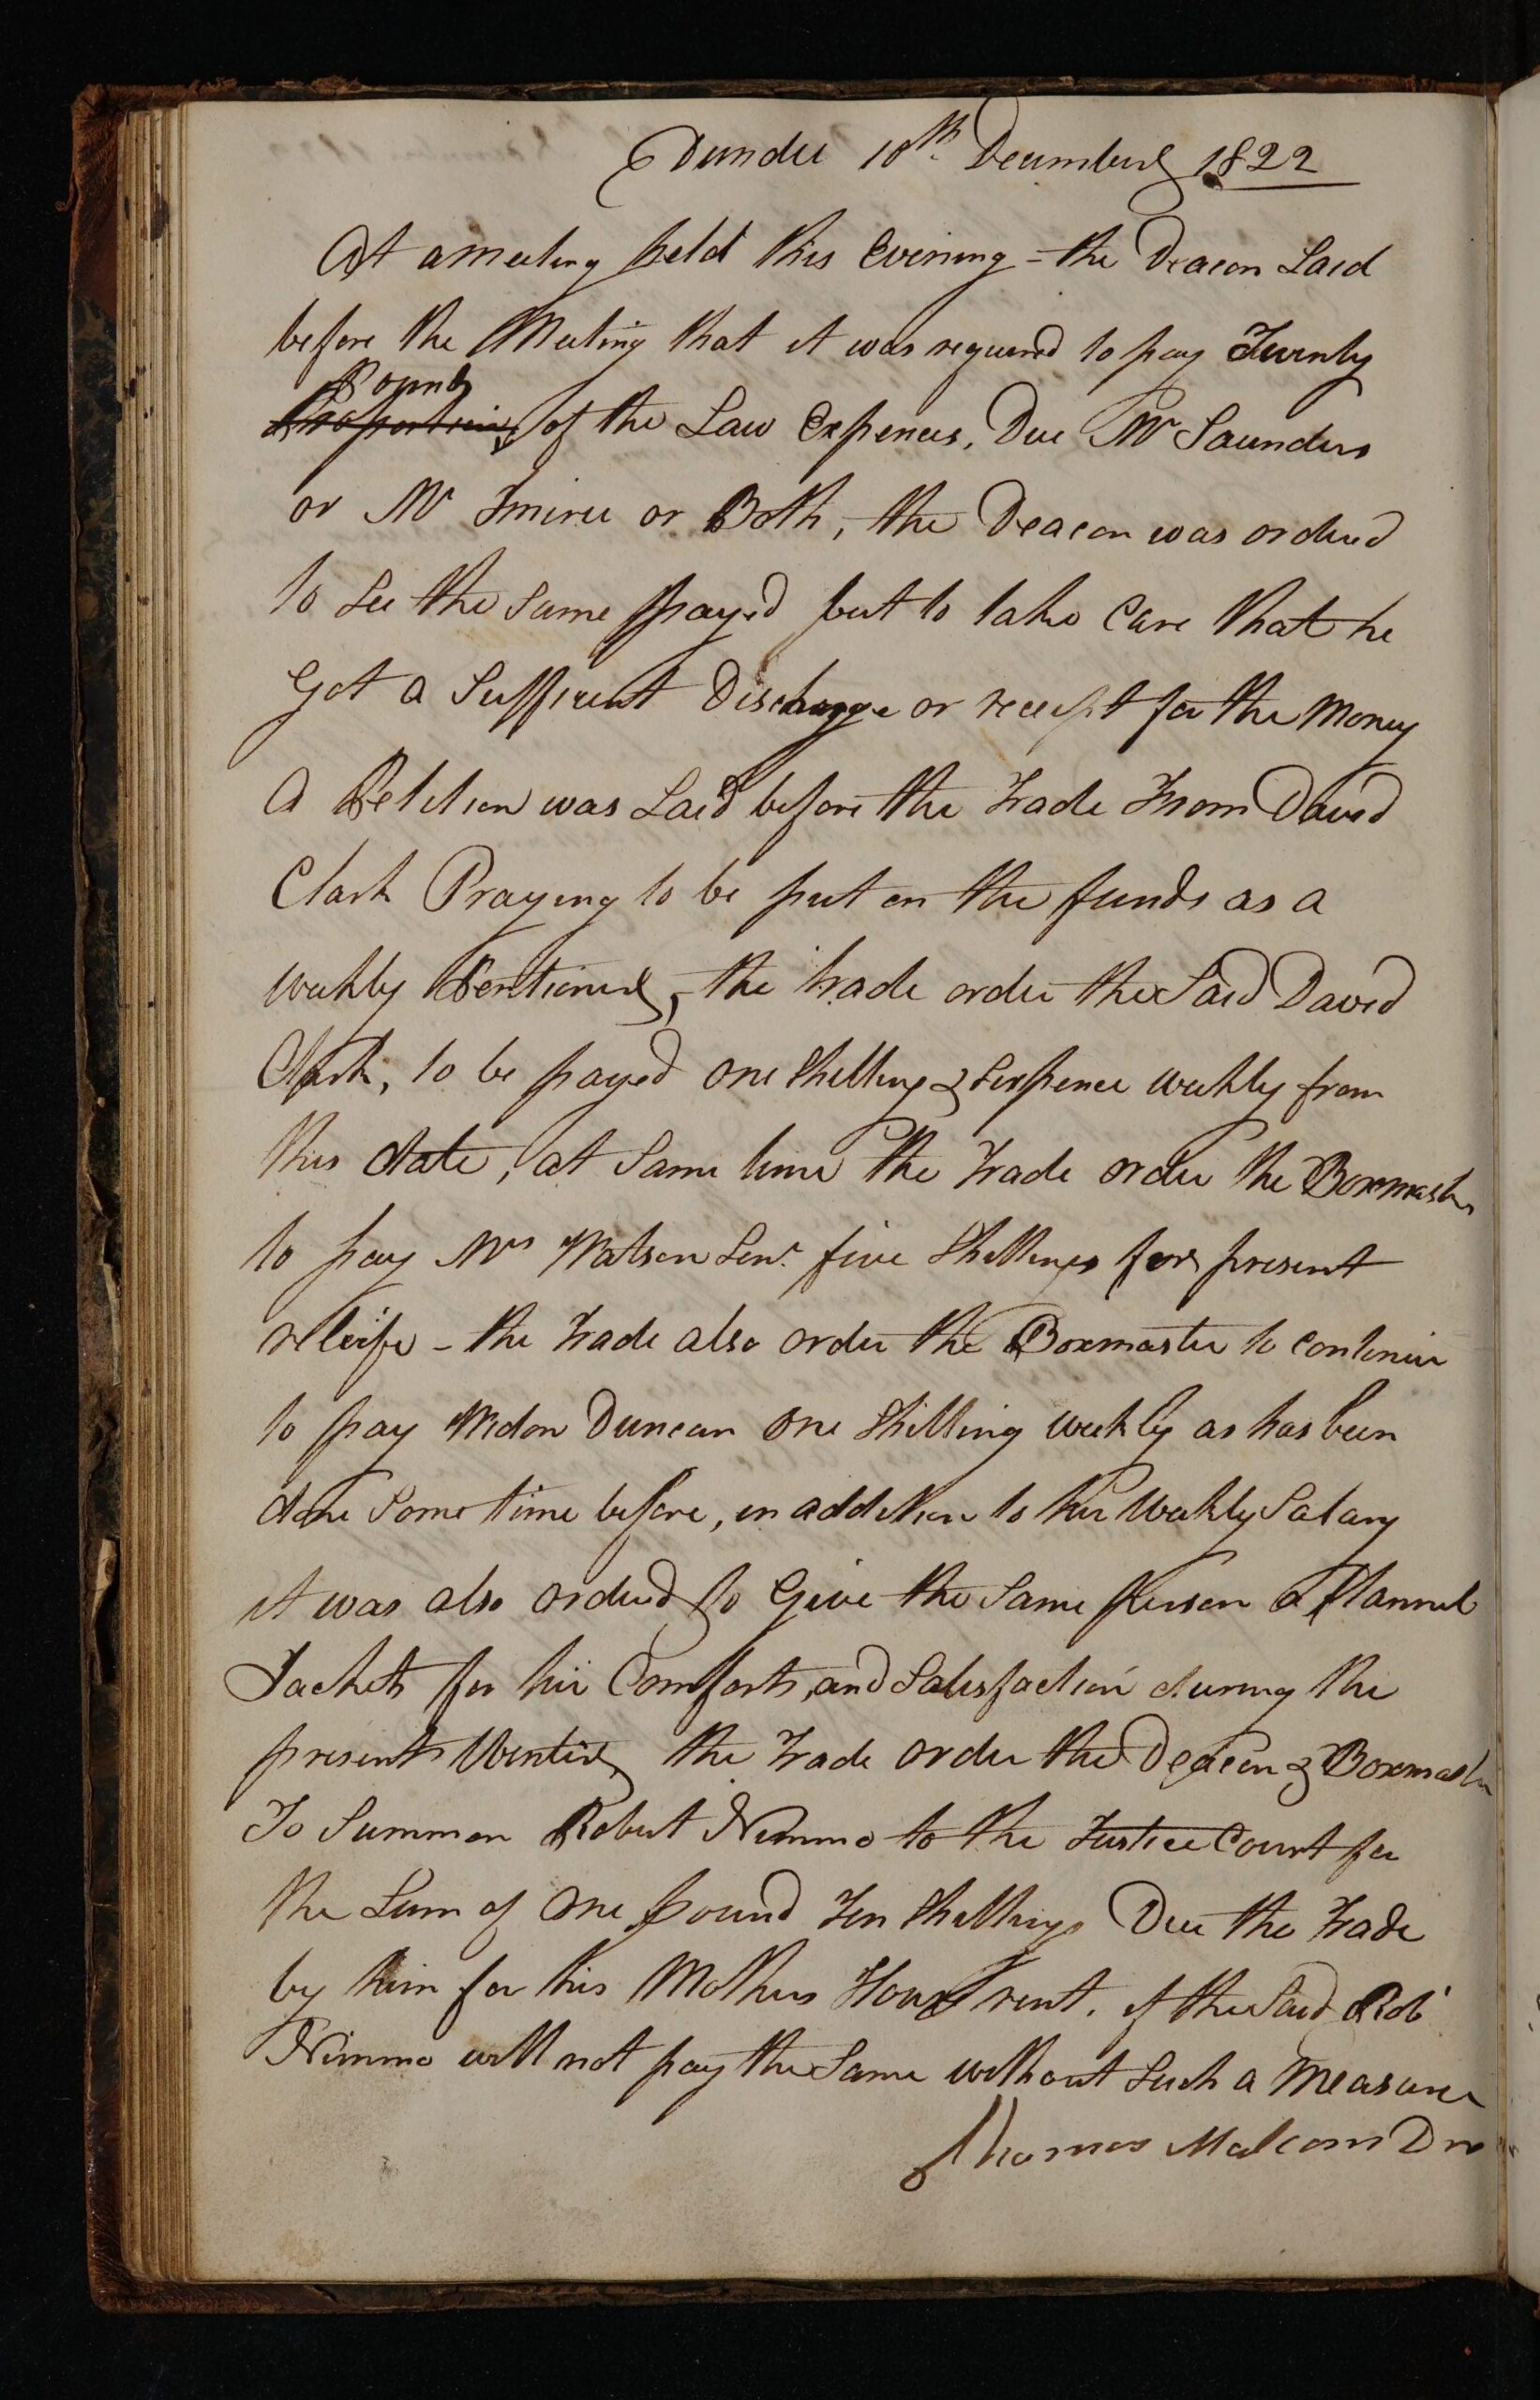 Dundee 10th December 1822
At a meeting held this Evening - the Deacon Laid
before the Meeting that it was requred to pay Twenty
Pounds
of the Law Expences, Due Mr Saunders
or Mr or Both, the Deacon was ordred
to See the Same payed but to take Care that he
Got a Suffient Discharge or receipt for the Money
A Petition was Laid before the Trade From David
Clark Praying to be put on the funds as a
weekly Pentioner, the trade order the Said David
Clark, to be payed one Shilling & Sixpence weekly from
this date, at Same time the Trade order the Boxmaster
to pay Mrs Watson Senr. five Shillings for present
releife - the Trade also order the Boxmaster to continue
to pay Widow Duncan one Shilling weekly as has been
done Some time before, in addition to her Weekly Salary
it was also ordred to Give the Same person a flannel
Jacket for her Comfort, and Satisfaction during the
present Winter, the Trade order the Deacon & Boxmaster
To Summon Robert Nimmo to the Justice Court for
the Sum of One pound Ten Shillings Due the Trade
by him for his Mothers House rent. if the Said Robt
Nimmo will not pay the Same without Such a Measure
Thomas Malcom Dn